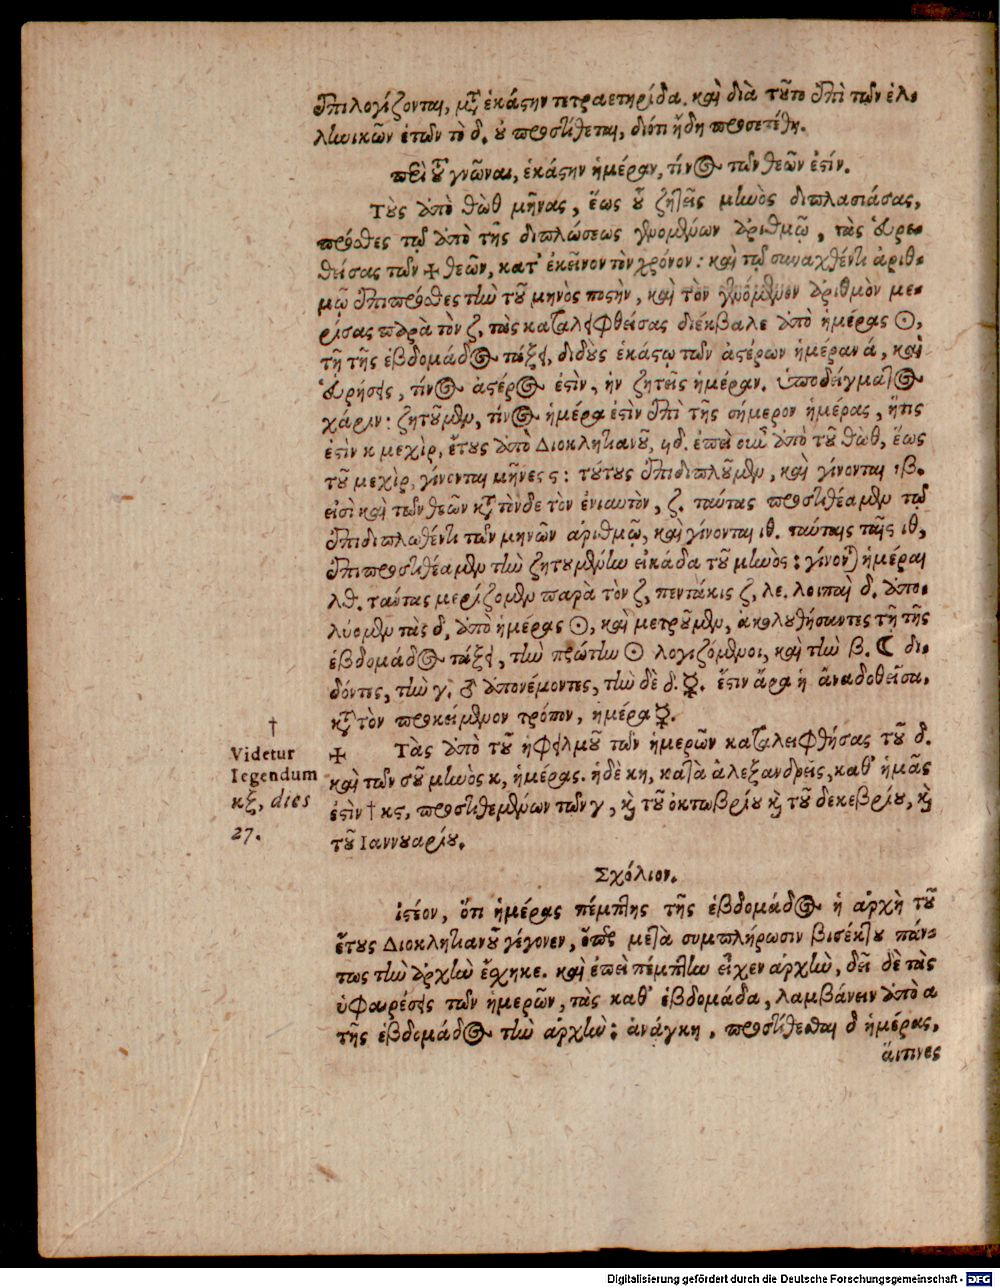 ἐπιλογίζονται, μετὰ ἑκάστην τετραετηρίδα. καὶ διὰ τοῦτο ἐπὶ τῶν ἑλ-
ληνικῶν ἐτῶν τὸ δ. οὐ προστίθεται, διότι ἤδη προσετέθη.
περὶ τοῦ γνῶναι, ἑκάστην ἡμέραν, τίνος τῶν θεῶν ἐστίν.
Τοὺς ἀπὸ θὼθ μῆνας, ἕως οὗ ζητεῖς μηνὸς διπλασιάσας,
πρόσθες τῷ ἀπὸ τῆς διπλώσεως γενομένων ἀριθμῷ, τὰς εὑρε-
θείσας τῶν ✠ θεῶν, κατ' ἐκεῖνον τὸν χρόνον: καὶ τῷ συναχθέντι ἀριθ-
μῷ ἐπιπρόσθες τὴν τοῦ μηνὸς ποστὴν, καὶ τὸν γενόμενον ἀριθμὸν με-
ρίσας παρὰ τὸν ζ, τὰς καταλειφθείσας διέκβαλε ἀπὸ ἡμέρας ☉,
τῇ τῆς ἑβδομάδος τάξει, διδοὺς ἑκάστῳ τῶν ἀστέρων ἡμέραν ά, καὶ
εὑρήσεις, τίνος ἀστέρος ἐστὶν, ἣν ζητεῖς ἡμέραν. ὑποδείγματος
χάριν: ζητοῦμεν, τίνος ἡμέρα ἐστὶν ἐπὶ τῆς σήμερον ἡμέρας, ἥτις
ἐστὶν κ μεχὶρ, ἔτους ἀπὸ Διοκλητιανοῦ, ϥδ. ἐπεὶ οὖν ἀπὸ τοῦ θὼθ, ἕως
τοῦ μεχὶρ, γίνονται μῆνες ϛ: τούτους ἐπιδιπλοῦμεν, καὶ γίνονται ιβ.
εἰσὶ καὶ τῶν θεῶν κατὰ τόνδε τὸν ἐνιαυτὸν, ζ. ταύτας προστιθέαμεν τῷ
ἐπιδιπλωθέντι τῶν μηνῶν ἀριθμῷ, καὶ γίνονται ιθ. ταύταις ταῖς ιθ,
ἐπιπροστιθέαμεν τὴν ζητουμένην εἰκάδα τοῦ μηνὸς: γίνονται ἡμέραι
λθ. ταύτας μερίζομεν παρὰ τὸν ζ, πεντάκις ζ, λε. λοιπαὶ δ. ἀπο-
λύομεν τὰς δ, ἀπὸ ἡμέρας ☉, καὶ μετροῦμεν, ἀκολουθήσαντες τῇ τῆς
ἑβδομάδος τάξει, τὴν πρώτην ☉ λογιζόμενοι, καὶ τὴν β. ☾ δι-
δόντες, τὴν γ. ♂ ἀπονέμοντες, τὴν δὲ δ. ☿. ἔστιν ἄρα ἡ ἀναδοθεῖσα,
κατὰ τὸν προκείμενον τρόπον, ἡμέρα ☿.
✠ Τὰς ἀπὸ τοῦ ἡφελμοῦ τῶν ἡμερῶν καταλειφθήσας τοῦ δ.
καὶ τῶν σοῦ μηνὸς κ, ἡμέρας. ἡ δὲ κη, κατὰ ἀλεξανδρεῖς, καθ' ἡμᾶς
ἐστὶν † κς, προστιθεμένων τῶν γ, καὶ τοῦ ὀκτωβρίου καὶ τοῦ δεκεβρίου, καὶ
τοῦ Ιαννουαρίου.
†
Videtur
legendum
κζ, dies
27.
Σχόλιον.
ἰστέον, ὅτι ἡμέρας πέμπτης τῆς ἑβδομάδος ἡ ἀρχὴ τοῦ
ἔτους Διοκλητιανοῦ γέγονεν, ὅπερ μετὰ συμπλήρωσιν βισέκτου πάν-
τως τὴν ἀρχὴν ἔσχηκε. καὶ ἐπεὶ πέμπτην εἶχεν ἀρχὴν, δεῖ δὲ τὰς
ὑφαιρέσεις τῶν ἡμερῶν, τὰς καθ' ἑβδομάδα, λαμβάνειν ἀπὸ α
τῆς ἑβδομάδος τὴν ἀρχὴν: ἀνάγκη, προστίθεσθαι δ ἡμέρας,
ἅιτινες
Digitalisierung gefördert durch die Deutsche Forschungsgemeinschaft - DFG